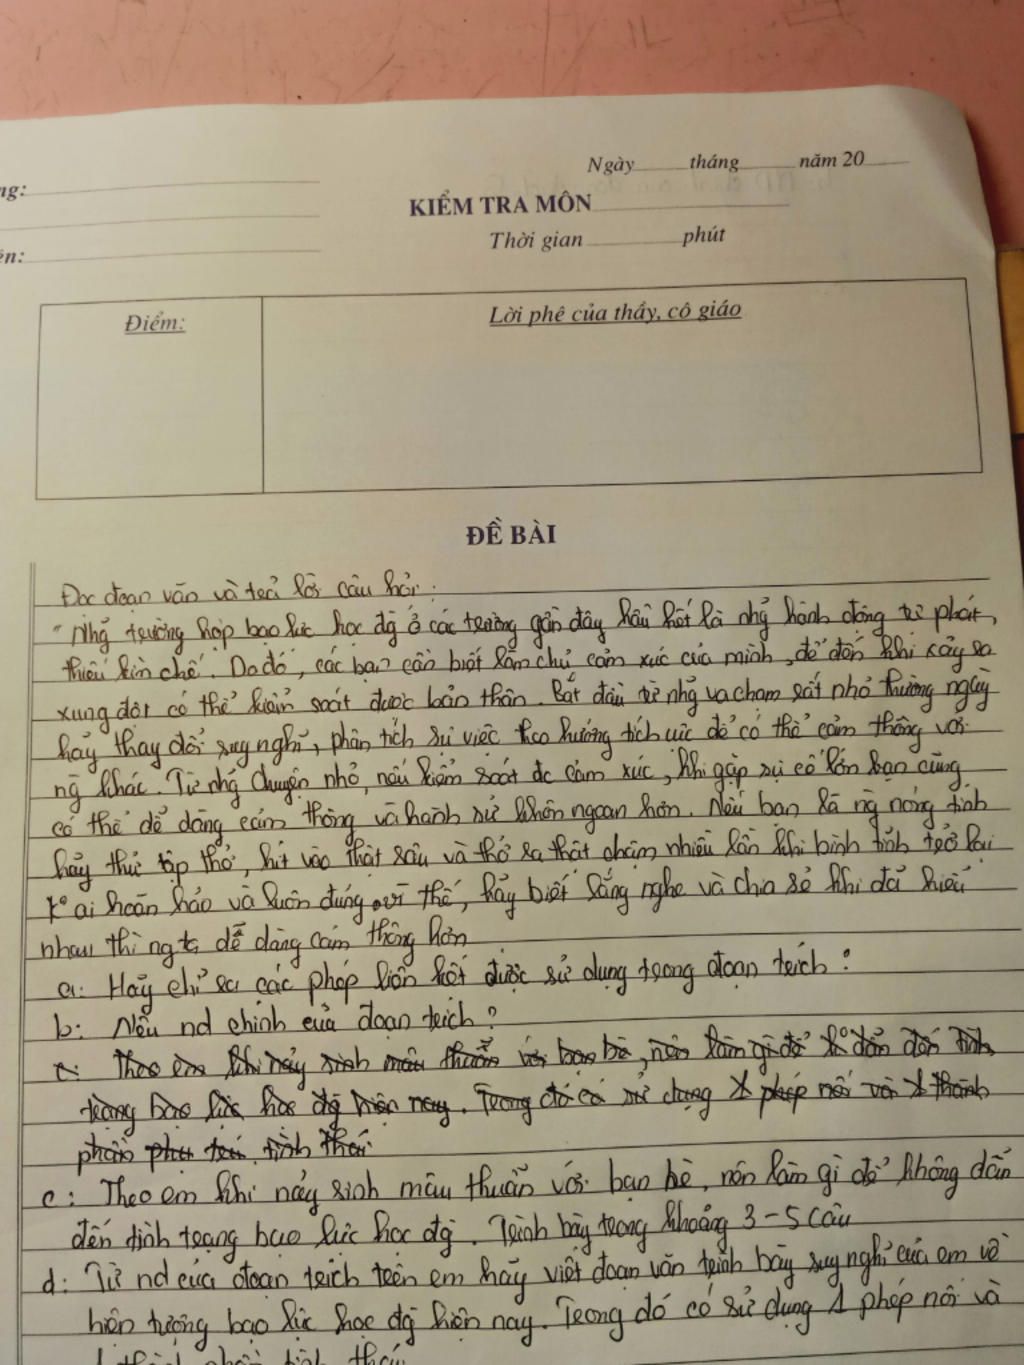 Ngày tháng năm 20
ng:
KIỂM TRA MÔN
Thời gian phút
ên:
Điểm:
Lời phê của thầy, cô giáo
ĐỀ BÀI
Đọc đoạn văn và trả lời câu hỏi:
"Nhg~ trường hợp bạo lực học đg ở các trường gần đây hầu hết là nhg~ hành động tự phát,
thiếu kìn chế. Do đó, các bạn cần biết làm chủ cảm xúc của mình, để đến khi xảy ra
xung đột có thể kiểm soát được bản thân. Bắt đầu từ nhg~ va chạm rất nhỏ thường ngày
hãy thay đổi suy nghĩ, phân tích sự việc theo hướng tích cực để có thể cảm thông với
ng khác. Từ nhg~ chuyện nhỏ, nếu kiểm soát đc cảm xúc, khi gặp sự cố lớn bạn cũng
có thể dễ dàng cảm thông và hành xử khôn ngoan hơn. Nếu bạn là ng nóng tính
hãy thử tập thở, hít vào thật sâu và thở ra thật chậm nhiều lần khi bình tĩnh trở lại
K° ai hoàn hảo và luôn đúng vì thế, hãy biết lắng nghe và chia sẻ khi đã hiểu
nhau thì ng ta dễ dàng cảm thông hơn
a: Hãy chỉ ra các phép liên kết được sử dụng trong đoạn trích?
b: Nêu nd chính của đoạn trích?
c: Theo em khi nảy sinh mâu thuẫn với bạn bè, nên làm gì để k° dẫn đến tình
trạng bạo lực học đg hiện nay. Trong đó có sử dụng 1 phép nối và 1 thành
phần phụ trú, tình thái
c: Theo em khi nảy sinh mâu thuẫn với bạn bè, nên làm gì để không dẫn
đến tình trạng bạo lực học đg. Trình bày trong khoảng 3-5 câu
d: Từ nd của đoạn trích trên em hãy viết đoạn văn trình bày suy nghĩ của em về
hiện tượng bạo lực học đg hiện nay. Trong đó có sử dụng 1 phép nối và